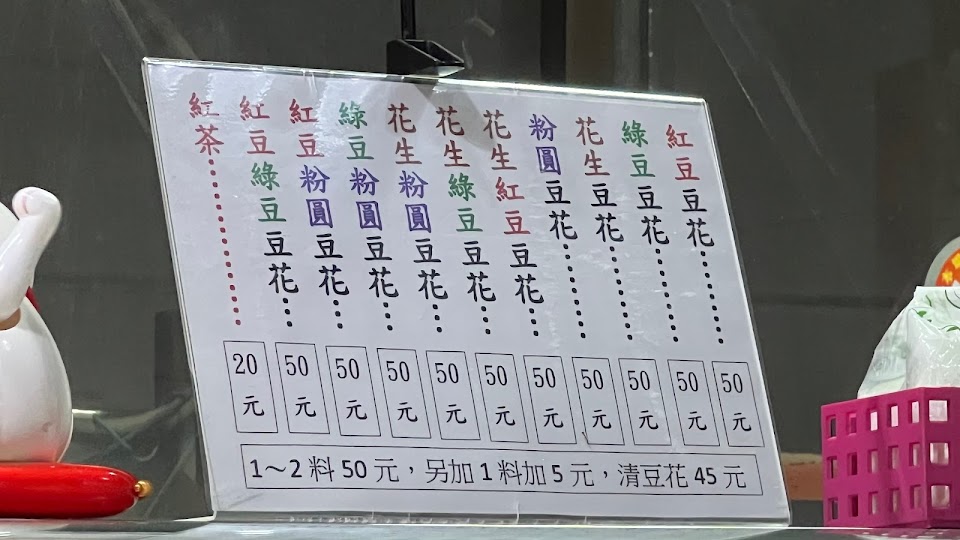 紅豆豆花⋯⋯50元
綠豆豆花⋯⋯50元
花生豆花⋯⋯50元
粉圓豆花⋯⋯50元
花生紅豆豆花⋯50元
花生綠豆豆花⋯50元
花生粉圓豆花⋯50元
綠豆粉圓豆花⋯50元
紅豆粉圓豆花⋯50元
紅豆綠豆豆花⋯50元
紅茶⋯⋯⋯⋯20元
1～2料50元，另加1料加5元，清豆花45元